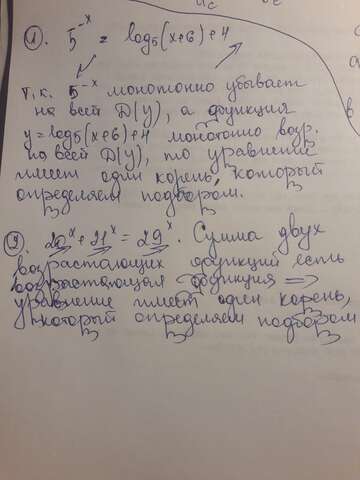 1. 5^-x = log₅(x+6)+4
т.к. 5^-x монотонно убывает
на всей D(y), а функция
y=log₅(x+6)+4 монотонно возр.
на всей D(y), то уравнение
имеет один корень, который
определяем подбором.
2. 20^x+21^x=29^x. Сумма двух
возрастающих функций есть
возрастающая функция =>
уравнение имеет один корень,
который определяем подбором